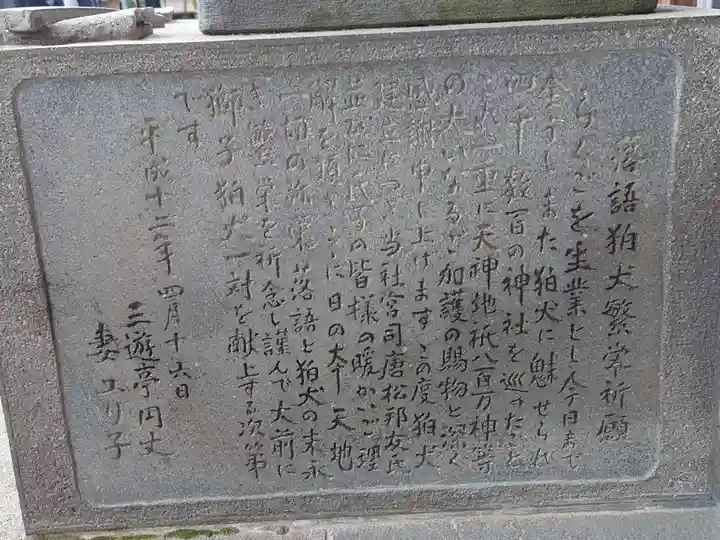 落語狛犬繁栄祈願
らくごを生業とし今日まで
全うしまた狛犬に魅せられ
四千数百の神社を巡ったこと
重に天神地祇八百万神等
の大いなるご加護の賜物と深く
感謝申し上げますこの度狛犬
建立につき当社宮司唐松邦友氏
並びに氏子の皆様の暖かいご理
解を頂き日の本天地
一切の弥栄落語と狛犬の末永
き繁栄を祈念し謹んで大前に
獅子狛犬一対を献上する次第
です
平成十二年四月十六日
三遊亭円丈
妻ユリ子